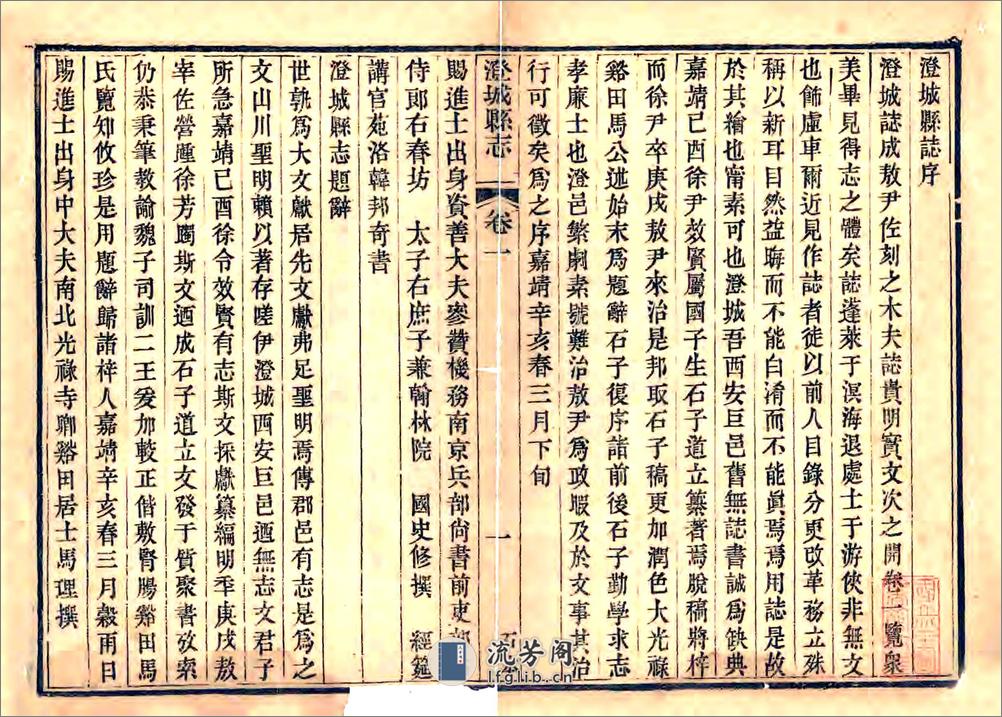 澄城縣誌序
澄城誌成敖尹佐刻之木夫誌貴明實文次之開卷一覽眾
美畢見得志之體矣誌蓬萊于溟海退處士于游俠非無文
也飾虛車爾近見作誌者徒以前人目錄分更改革務立殊
稱以新耳目然益晦而不能白淆而不能眞焉焉用誌是故
於其繪也甯素可也澄城吾西安巨邑舊無誌書誠為缺典
嘉靖已酉徐尹效賢屬國子生石子道立纂著焉脫稿將梓
而徐尹卒庚戌敖尹來治是邦取石子稿更加潤色大光祿
谿田馬公述始末為題辭石子復序諸前後石子勤學求志
孝廉士也澄邑繁劇素號難治敖尹為政暇及於文事其治
行可徵矣為之序嘉靖辛亥春三月下旬
澄城縣志 卷一 一
賜進士出身資善大夫參贊機務南京兵部尚書前吏部
侍郎右春坊 太子右庶子兼翰林院 國史修撰 經筵
講官苑洛韓邦奇書
澄城縣志題辭
世孰為大文獻居先文獻弗足聖明焉傳郡邑有志是為之
文山川聖明賴以著存嗟伊澄城西安巨邑迺無志文君子
所急嘉靖己酉徐令效賢有志斯文採獻纂編明季庚戌敖
宰佐營踵徐芳躅斯文迺成石子道立文發于質聚書攷索
仍恭秉筆教諭魏子司訓二王爰加較正偕敷腎腸谿田馬
氏覽知攸珍是用題辭歸諸梓人嘉靖辛亥春三月穀雨日
賜進士出身中大夫南北光祿寺卿谿田居士馬理撰
流芳阁
lfglib.cn